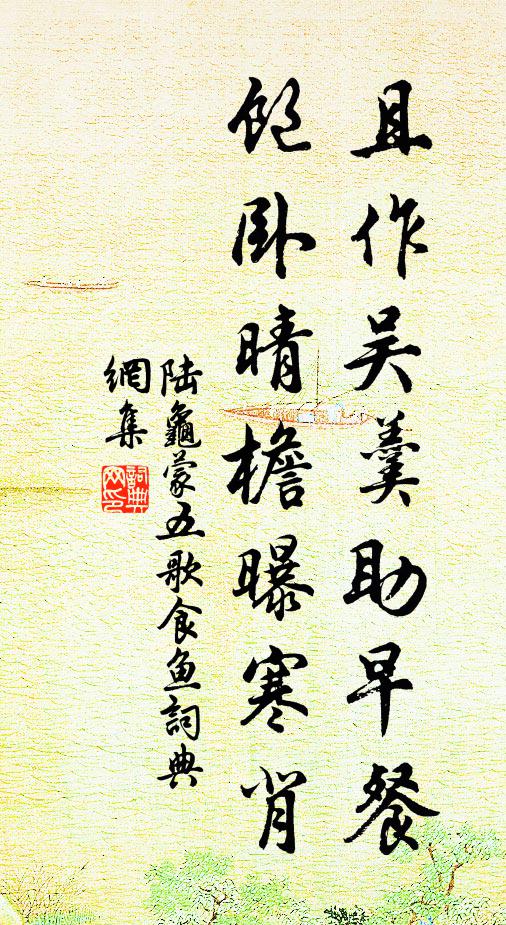 且作吴羹助早餐
饱卧晴檐曝寒背
陆龜蒙五歌食鱼詞典
網集
詞典网印